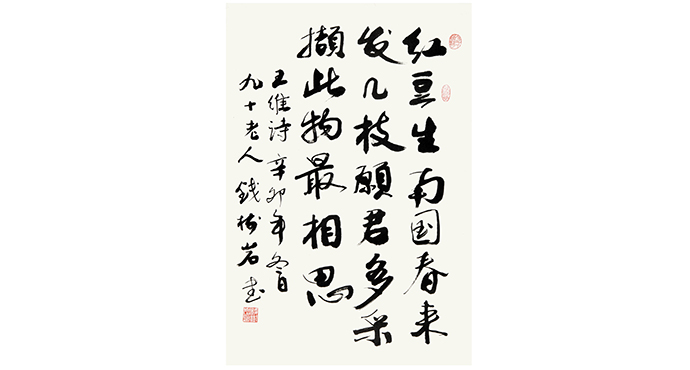 红豆生南国春来
发几枝願君多采
撷此物最相思
王维诗辛卯年冬日
九十老人钱树岩书